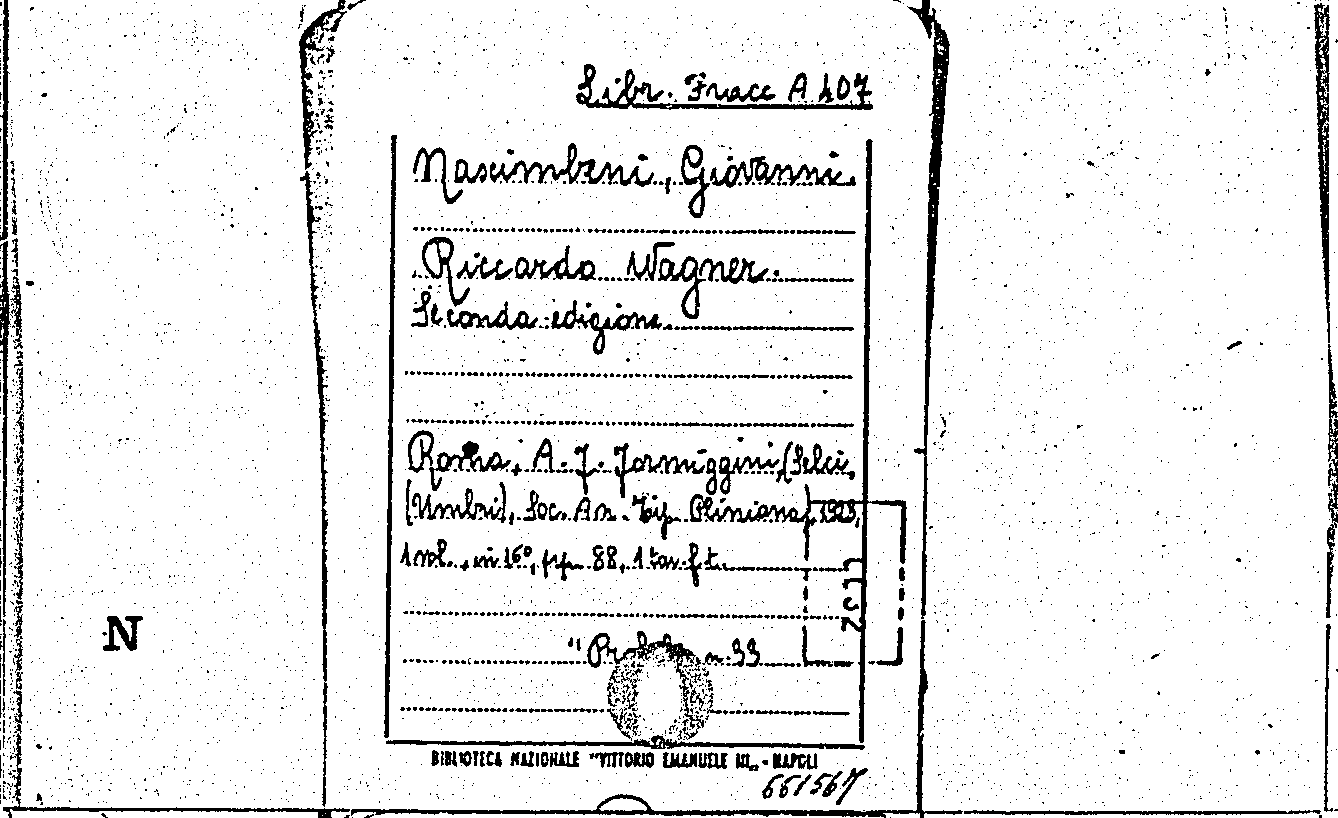 Libr. Fracc A 407
Nascimbeni, Giovanni.
Riccardo Wagner.
Seconda edizione.
Roma, A. F. Formiggini, (Selci,
(Umbri), Soc. An. Tip. Pliniana), 1923,
1 vol., in 16º, pp. 88, 1 tav. f. t.
n. 33
N
BIBLIOTECA NAZIONALE "VITTORIO EMANUELE III„ - NAPOLI
661567